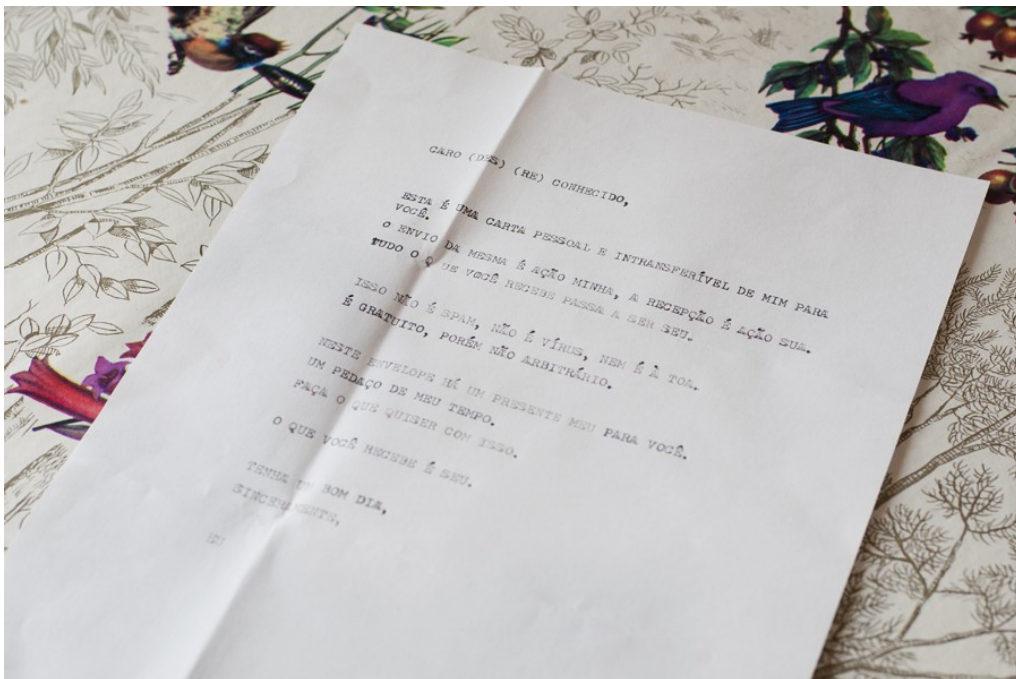 CARO (DES) (RE) CONHECIDO,
ESTA É UMA CARTA PESSOAL E INTRANSFERÍVEL DE MIM PARA
VOCÊ.
O ENVIO DA MESMA É AÇÃO MINHA, A RECEPÇÃO É AÇÃO SUA.
TUDO O QUE VOCÊ RECEBE PASSA A SER SEU.
ISSO NÃO É SPAM, NÃO É VÍRUS, NEM É À TOA.
É GRATUITO, PORÉM NÃO ARBITRÁRIO.
NESTE ENVELOPE HÁ UM PRESENTE MEU PARA VOCÊ.
UM PEDAÇO DE MEU TEMPO.
FAÇA O QUE QUISER COM ISSO.
O QUE VOCÊ RECEBE É SEU.
TENHA UM BOM DIA,
SINCERAMENTE,
EU